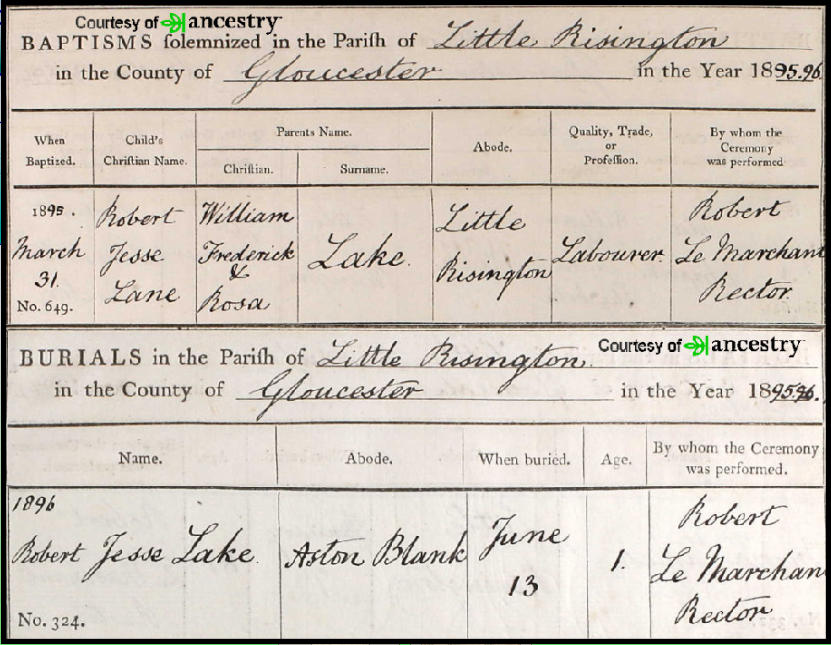 Courtesy of ancestry
BAPTISMS solemnized in the Parish of Little Risington
in the County of Gloucester in the Year 1895.96.
When Baptized. Child's Christian Name. Parents Name. Abode. Quality, Trade, or Profession. By whom the Ceremony was performed
Christian. Surname.
1895. Robert William Little Robert
March Jesse Frederick Lake. Risington Labourer Le Marchant
31. Lane & Rector.
No. 649. Rosa
BURIALS in the Parish of Little Risington.
Courtesy of ancestry
in the County of Gloucester in the Year 1895.96.
Name. Abode. When buried. Age. By whom the Ceremony was performed.
1896 Robert
Robert Jesse Lake. Aston Blank June 1. Le Marchan
13 Rector
No. 324.